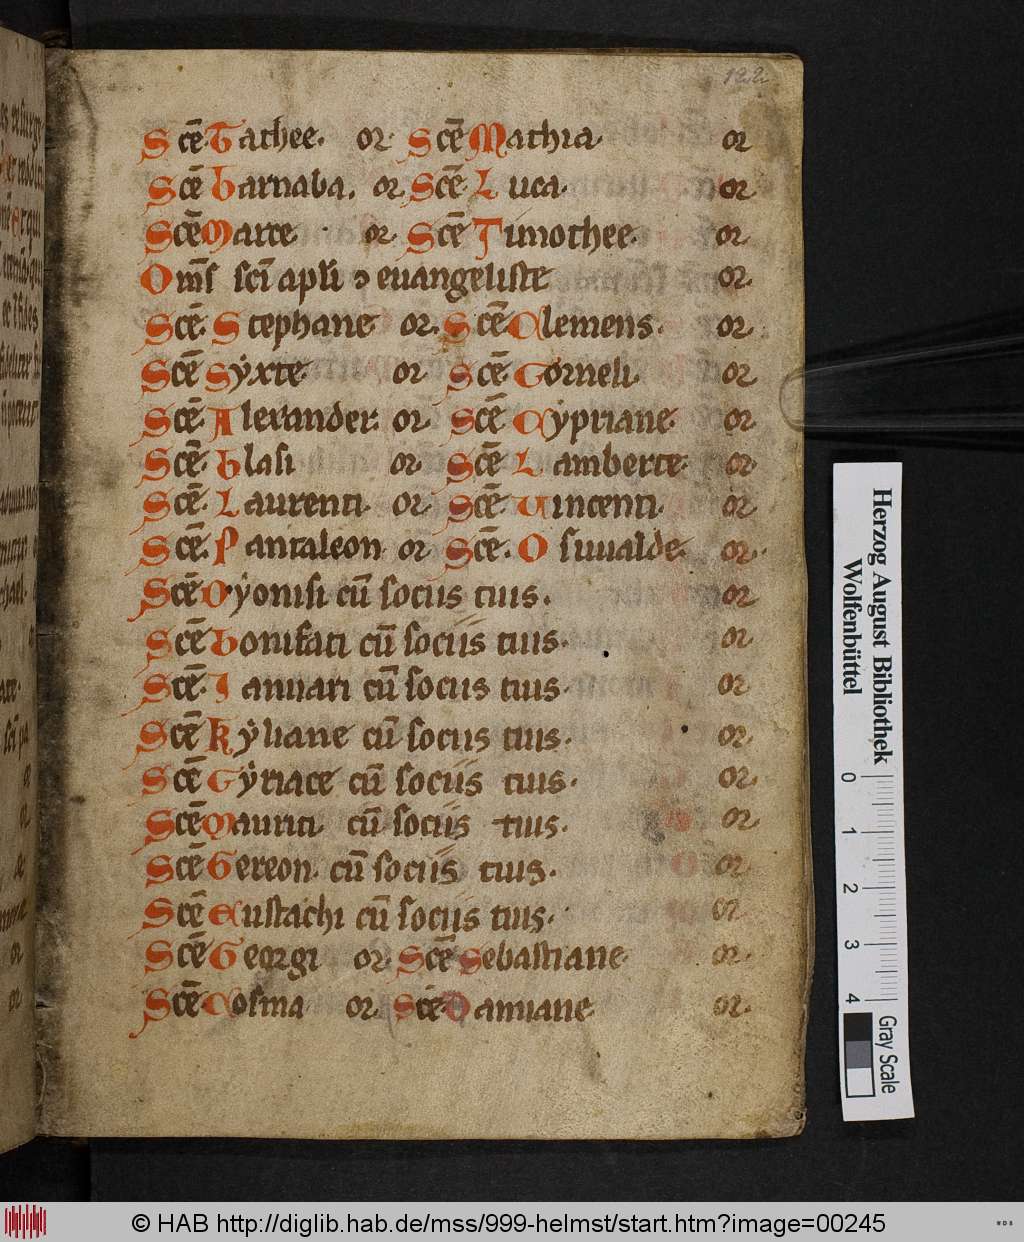 122
Scē Tathee. or Scē Mathia. or
Scē barnaba. or. Scē. Luca. or
Scē Marce or. Scē Timothee. or.
Omīs scī apłi ⁊ euangeliste or.
Scē. Stephane or. Scē Clemens. or.
Scē Syxte. or Scē. Corneli. or
Scē. Alexander. or. Scē Cypriane. or
Scē. blasi or. Scē Lamberte. or
Scē. Laurenti. or. Scē Vincenti. or
Scē. Pantaleon or Scē. Osuualde. or.
Scē Dyonisi cū sociis tuis. or
Scē bonifati cū sociis tuis. or
Scē. Ianuari cū sociis tuis. or
Scē Kyliane cū sociis tuis. or.
Scē Cyriace cū sociis tuis. or.
Scē Mauriti. cū sociis tuis. or.
Scē Gereon. cū sociis tuis. or
Scē Eustachi cū sociis tuis. or
Scē Georgi or. Scē Sebastiane. or.
Scē Cosma or. Scē Damiane or.
Herzog August Bibliothek
Wolfenbüttel
0 1 2 3 4
Gray Scale
© HAB http://diglib.hab.de/mss/999-helmst/start.htm?image=00245